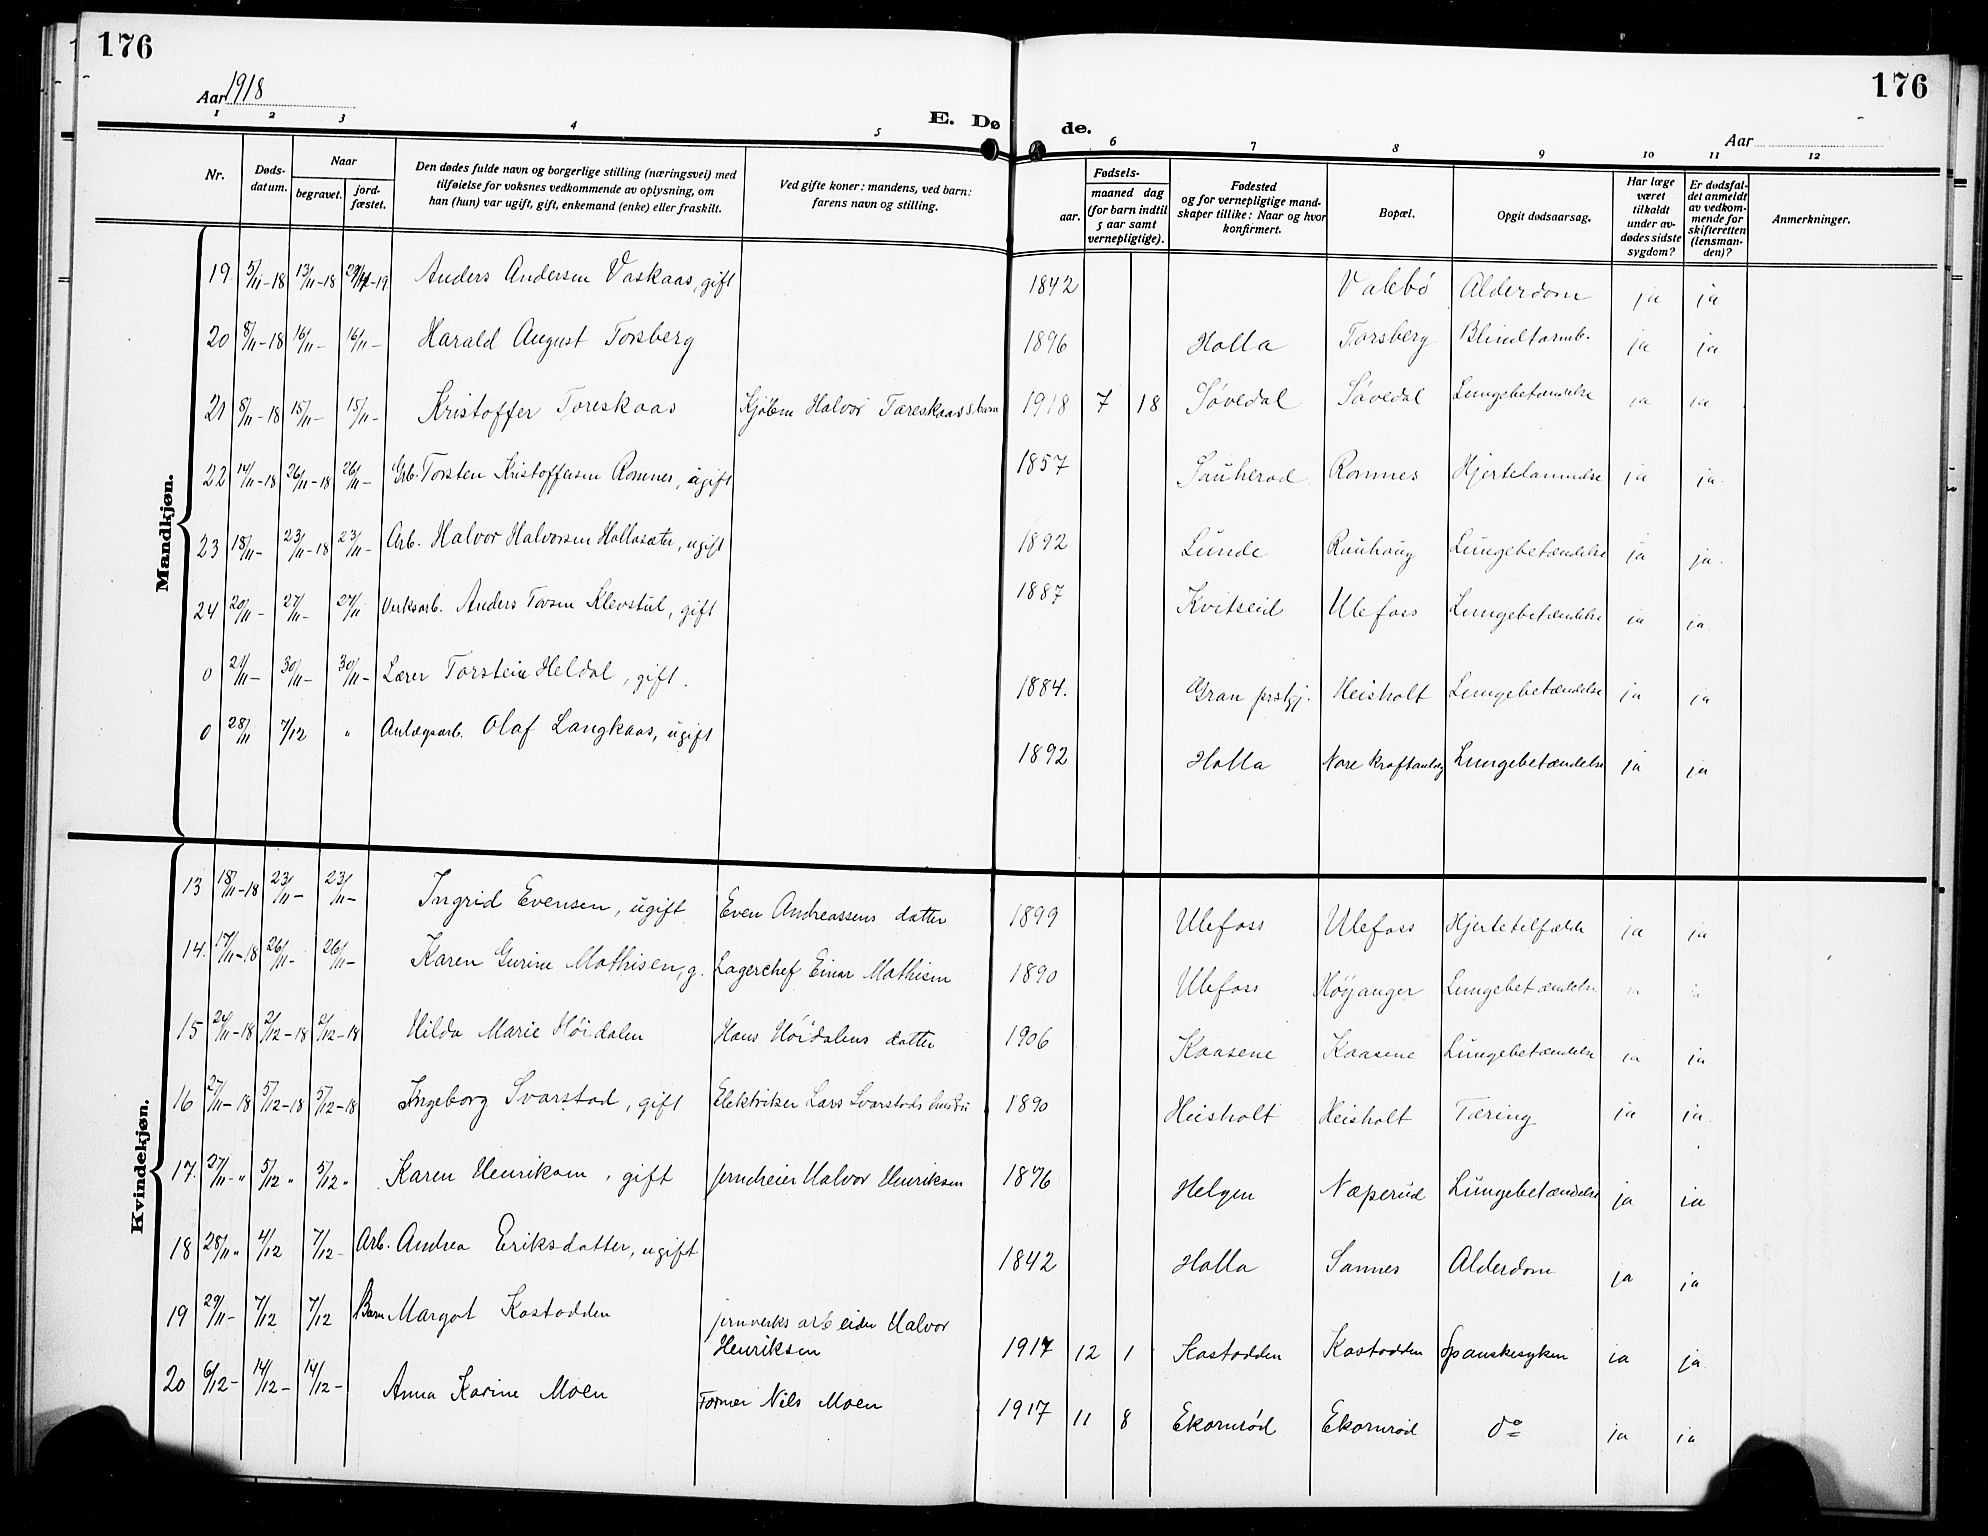 176
176
Aar 1918
E. Dø de.
Aar
1 2 3 4 5 6 7 8 9 10 11 12
Nr.
Døds-datum.
Naar
begravet.
jord-fæstet.
Den dødes fulde navn og borgerlige stilling (næringsvei) med
tilføielse for voksnes vedkommende av oplysning, om
han (hun) var ugift, gift, enkemand (enke) eller fraskilt.
Ved gifte koner: mandens, ved barn:
farens navn og stilling.
Fødsels-
aar.
maaned dag
(for barn indtil
5 aar samt
vernepligtige).
Fødested
og for vernepligtige mand-
skaper tillike: Naar og hvor
konfirmert.
Bopæl.
Opgit dødsaarsag.
Har læge
været
tilkaldt
under av-
dødes sidste
sygdom?
Er dødsfal-
det anmeldt
av vedkom-
mende for
skifteretten
(lensman-
den)?
Anmerkninger.
Mandkjøn.
19 5/11-18 13/11-18 Anders Andersen Vaskaas, gift 1842 Valebø Alderdom ja ja
20 8/11-18 16/11- 16/11- Harald August Torsberg 1896 Holla Torsberg Blindtarmb. ja ja
21 8/11-18 15/11- 15/11- Kristoffer Toreskaas Halvor Toreskaas s. barn 1918 7 18 Søvedal Søvedal Lungebetændelse ja ja
22 14/11-18 26/11-18 26/11- Arb. Torsten Kristoffersen Romnes, ugift 1857 Sauherad Romnes Hjertelammelse ja ja.
23 18/11- 23/11-18 23/11- Arb. Halvor Halvorsen Hollasæter, ugift 1892 Lunde Rauhaug Lungebetændelse ja ja.
24 20/11- 27/11- 27/11 Verksarb. Anders Torsen Klevstul, gift 1887 Kvitseid Ulefoss Lungebetændelse ja ja.
0 21/11- 30/11- 30/11- Lærer Torstein Heldal, gift. 1884. Gran prstgj. Heisholt Lungebetændelse ja ja
0 28/11 7/12 " Anlægsarb. Olaf Langkaas, ugift 1892 Holla Nore kraftanlæg Lungebetændelse ja ja
Kvindekjøn.
13 18/11-18 23/11- 23/11- Ingrid Evensen, ugift Even Andreassens datter 1899 Ulefoss Ulefoss Hjertetilfælde ja ja
14. 17/11-18 26/11- 26/11- Karen Gurine Mathisen, g. Lagerchef Einar Mathisen 1890 Ulefoss Høyanger Lungebetændelse ja ja
15 24/11-18 2/12-18 2/12-18 Hilda Marie Høidalen Hans Høidalens datter 1906 Kaasene Kaasene Lungebetændelse ja ja
16 27/11-18 5/12-18 5/12-18 Ingeborg Svarstad, gift Elektriker Lars Svarstads hustru 1890 Heisholt Heisholt Tæring ja ja.
17. 27/11-" 5/12 " 5/12 " Karen Henriksen, gift Halvor Henriksen 1876 Helgen Næperud Lungebetændelse ja ja
18 28/11 " 4/12 7/12- Arb. Andrea Eriksdatter, ugift 1842 Holla Sannes Alderdom ja ja
19 29/11- 7/12 7/12 Barn Margot Kastodden jernverks arbeider Halvor
Henriksen 1917 12 1 Kastodden Kastodden Spanskesyken ja ja
20 6/12- 14/12- 14/12- Anna Karine Moen Former Nils Moen 1917 11 8 Ekornrød Ekornrød do ja ja